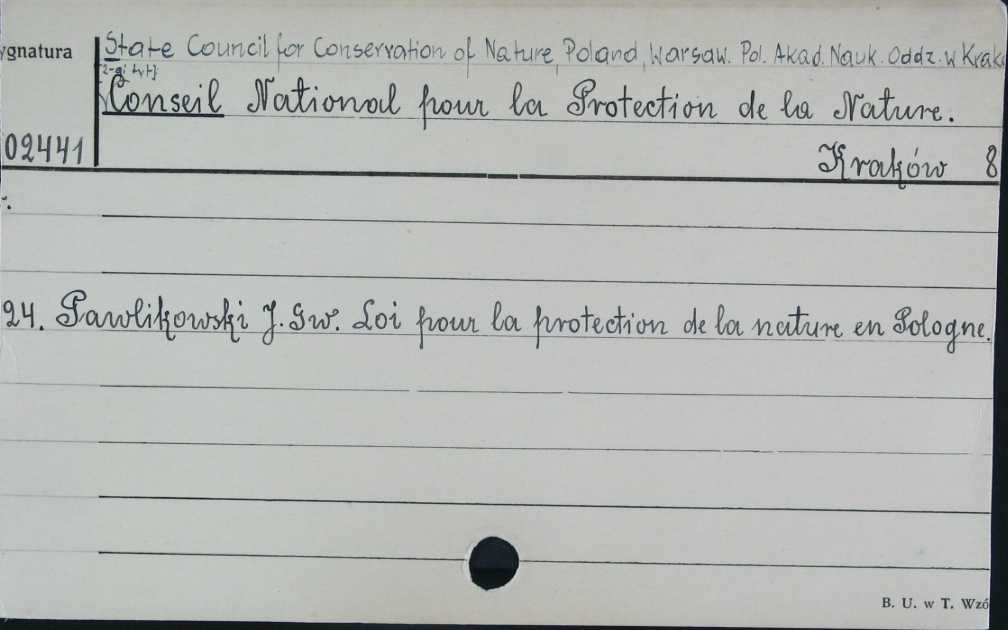 ygnatura State Council for Conservation of Nature, Poland, Warsaw. Pol. Akad. Nauk. Oddz. w Krak
2-gi tyt}
Conseil National pour la Protection de la Nature.
02441 Kraków 8
24. Pawlikowski J. Gw. Loi pour la protection de la nature en Pologne.
B. U. w T. Wzó